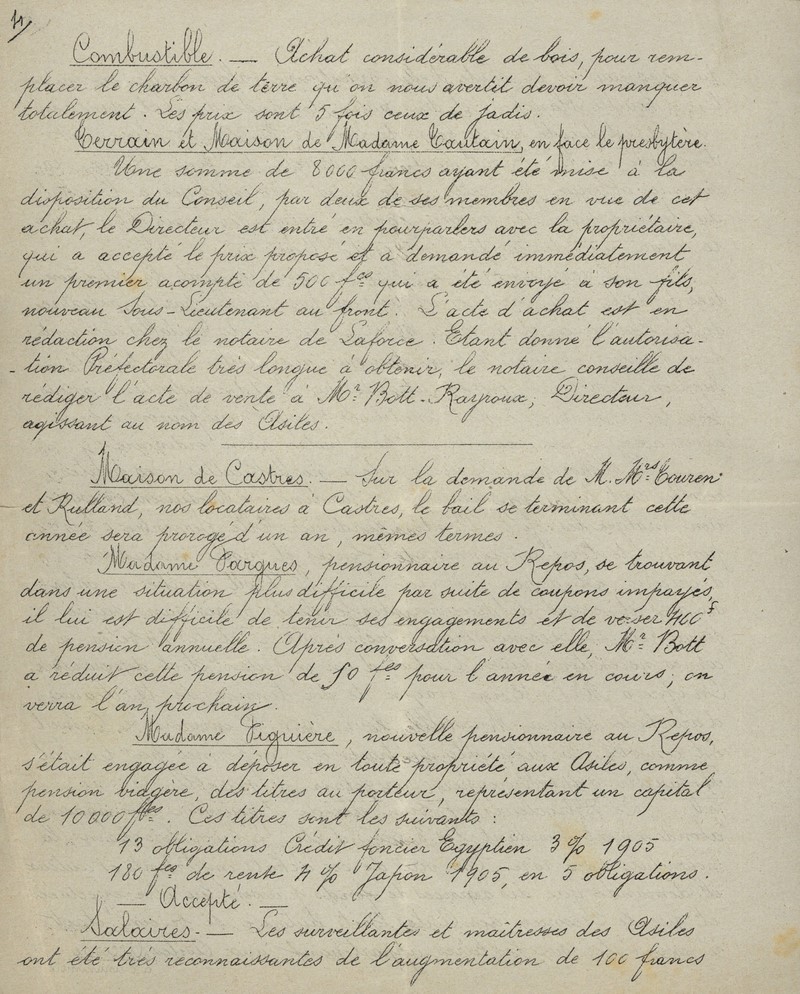 4/
Combustible. — Achat considérable de bois, pour rem-
placer le charbon de terre qu'on nous avertit devoir manquer
totalement. Les prix sont 5 fois ceux de jadis.
Terrain et Maison de Madame Cautain, en face le presbytère.
Une somme de 8000 francs ayant été mise à la
disposition du Conseil, par deux de ses membres en vue de cet
achat, le Directeur est entré en pourparlers avec la propriétaire,
qui a accepté le prix proposé et a demandé immédiatement
un premier acompte de 500 fcs qui a été envoyé à son fils,
nouveau Sous-Lieutenant au front. L'acte d'achat est en
rédaction chez le notaire de Laforce. Etant donné l'autorisa-
-tion Préfectorale très longue à obtenir, le notaire conseille de
rédiger l'acte de vente à Mr Bott-Rayroux, Directeur,
agissant au nom des Asiles.
Maison de Castres. — Sur la demande de M. Mrs Couren
et Rulland, nos locataires à Castres, le bail se terminant cette
année sera prorogé d'un an, mêmes termes.
Madame Pargues, pensionnaire au Repos, se trouvant
dans une situation plus difficile par suite de coupons impayés,
il lui est difficile de tenir ses engagements et de verser 400f
de pension annuelle. Après conversation avec elle, Mr Bott
a réduit cette pension de 50 fcs pour l'année en cours; on
verra l'an prochain.
Madame Figuière, nouvelle pensionnaire au Repos,
s'était engagée à déposer en toute propriété aux Asiles, comme
pension viagère, des titres au porteur, représentant un capital
de 10000 fcs. Ces titres sont les suivants:
13 obligations Crédit foncier Egyptien 3% 1905
180 fcs de rente 4% Japon 1905, en 5 obligations.
— Accepté. —
Salaires. — Les surveillantes et maîtresses des Asiles
ont été très reconnaissantes de l'augmentation de 100 francs